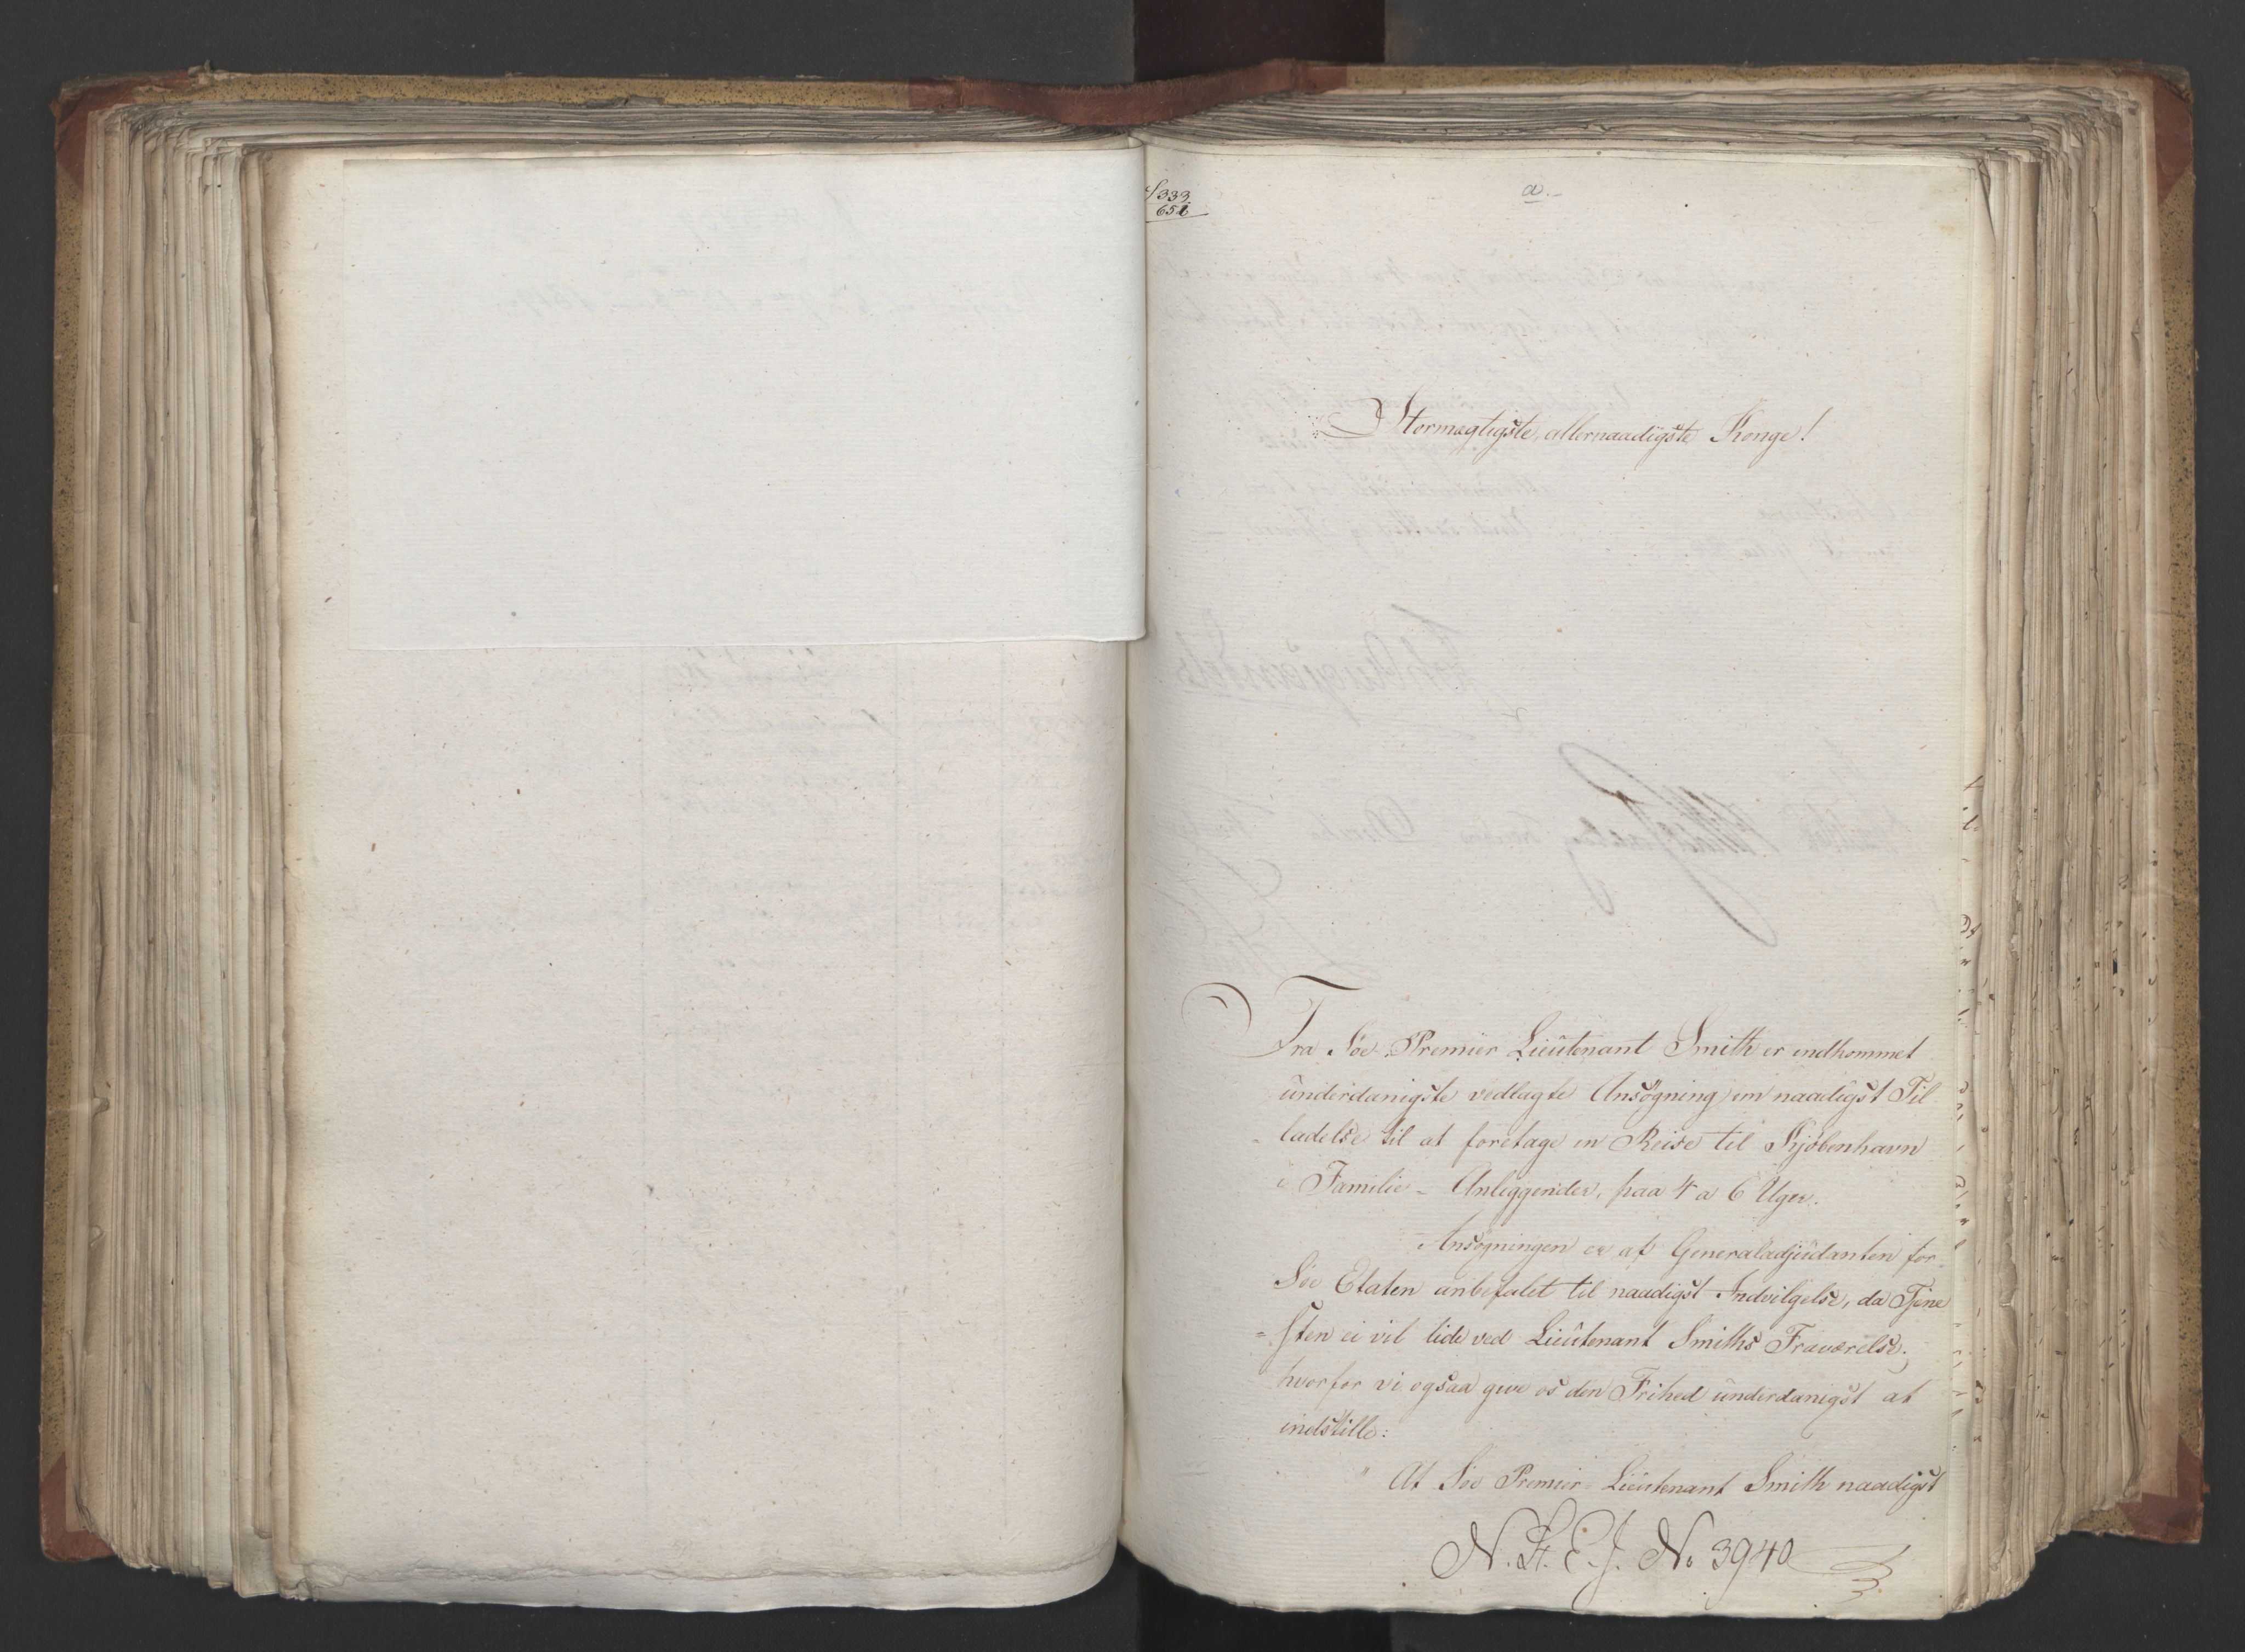 333
a.
Stormægtigste, allernaadigste Konge!
Fra Søe-Premier Lieutenant Smith er indkommet
underdanigste vedlagte Ansøgning om naadigst Til-
ladelse til at foretage en Reise til Kjøbenhavn
i Familie-Anliggender, paa 4 a 6 Uger.
Ansøgningen er af Generaladjudanten for
Søe Etaten anbefalet til naadigst Indvilgelse, da Tjene
=sten ei vil lide ved Lieutenant Smiths Fraværelse;
hvorfor vi ogsaa give os den Frihed underdanigst at
indstille:
" At Søe Premier-Lieutenant Smith naadigst
N. St. E. J. No 3940